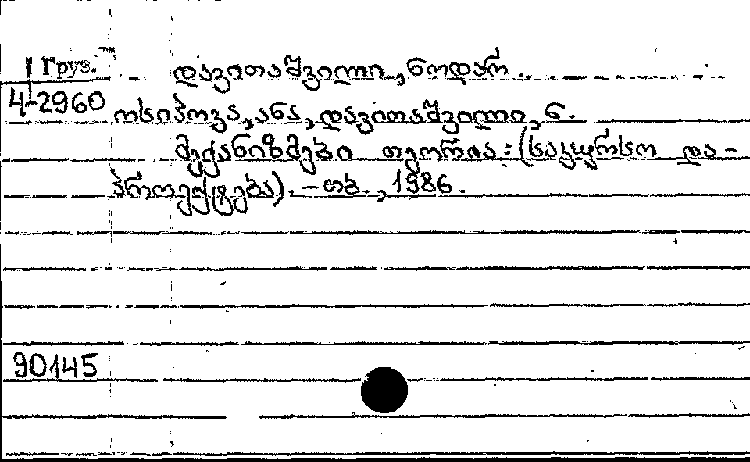 Груз. დავითაშვილი, ნოდარ
4-2960 ოსიპოვა, ანა, დავითაშვილი, ნ.
მექანიზმები თეორია: (საკურსო და-
პროექტება). – თბ., 1986.
90145